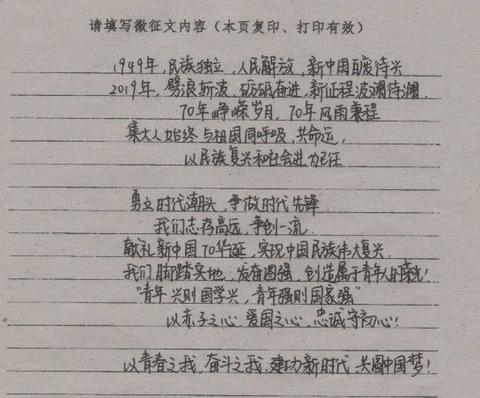 请填写微征文内容（本页复印、打印有效）
1949年，民族独立，人民解放，新中国百废待兴
2019年，劈浪斩波，砥砺奋进，新征程波澜待澜
70年峥嵘岁月，70年风雨兼程
集大人始终与祖国同呼吸，共命运，
以民族复兴和社会进步为己任
勇立时代潮头，争做时代先锋
我们志存高远，争创一流
献礼新中国70华诞，实现中国民族伟大复兴
我们脚踏实地，发奋图强，创造属于青年人的荣光！
"青年兴则国学兴，青年强则国家强"
以赤子之心，爱国之心，忠诚守初心！
以青春之我，奋斗之我，建功新时代，共圆中国梦！